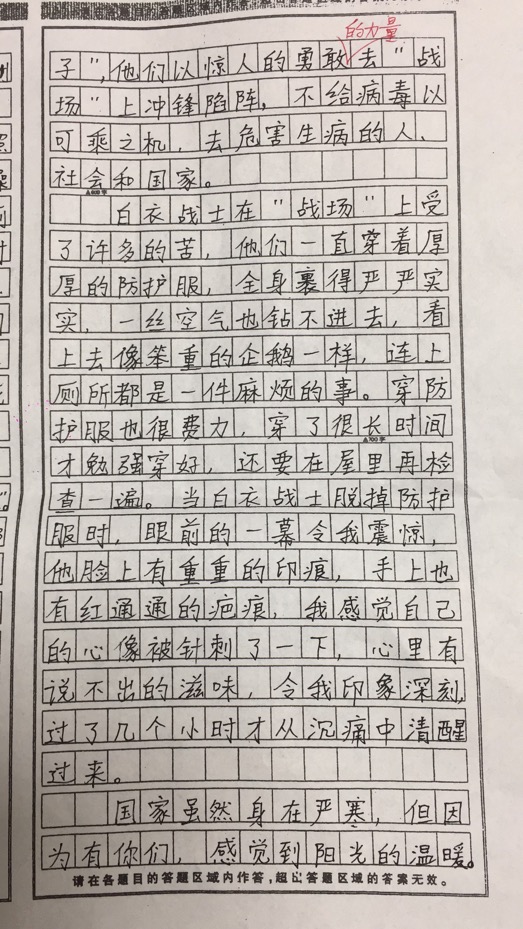 的力量
子”，他们以惊人的勇敢去“战
场”上冲锋陷阵，不给病毒以
可乘之机，去危害生病的人、
社会和国家。
▲600字
白衣战士在“战场”上受
了许多的苦，他们一直穿着厚
厚的防护服，全身裹得严严实
实，一丝空气也钻不进去，看
上去像笨重的企鹅一样，连上
厕所都是一件麻烦的事。穿防
护服也很费力，穿了很长时间
▲700字
才勉强穿好，还要在屋里再检
查一遍。当白衣战士脱掉防护
服时，眼前的一幕令我震惊，
他脸上有重重的印痕，手上也
有红通通的疤痕，我感觉自己
的心像被针刺了一下，心里有
说不出的滋味，令我印象深刻，
过了几个小时才从沉痛中清醒
过来。
国家虽然身在严寒，但因
为有你们，感觉到阳光的温暖。
请在各题目的答题区域内作答，超出答题区域的答案无效。